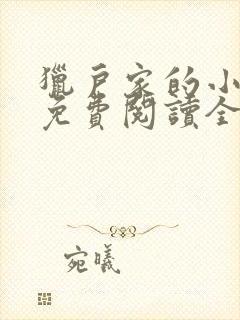 獵戶家的小
免費閱讀全
宛曦